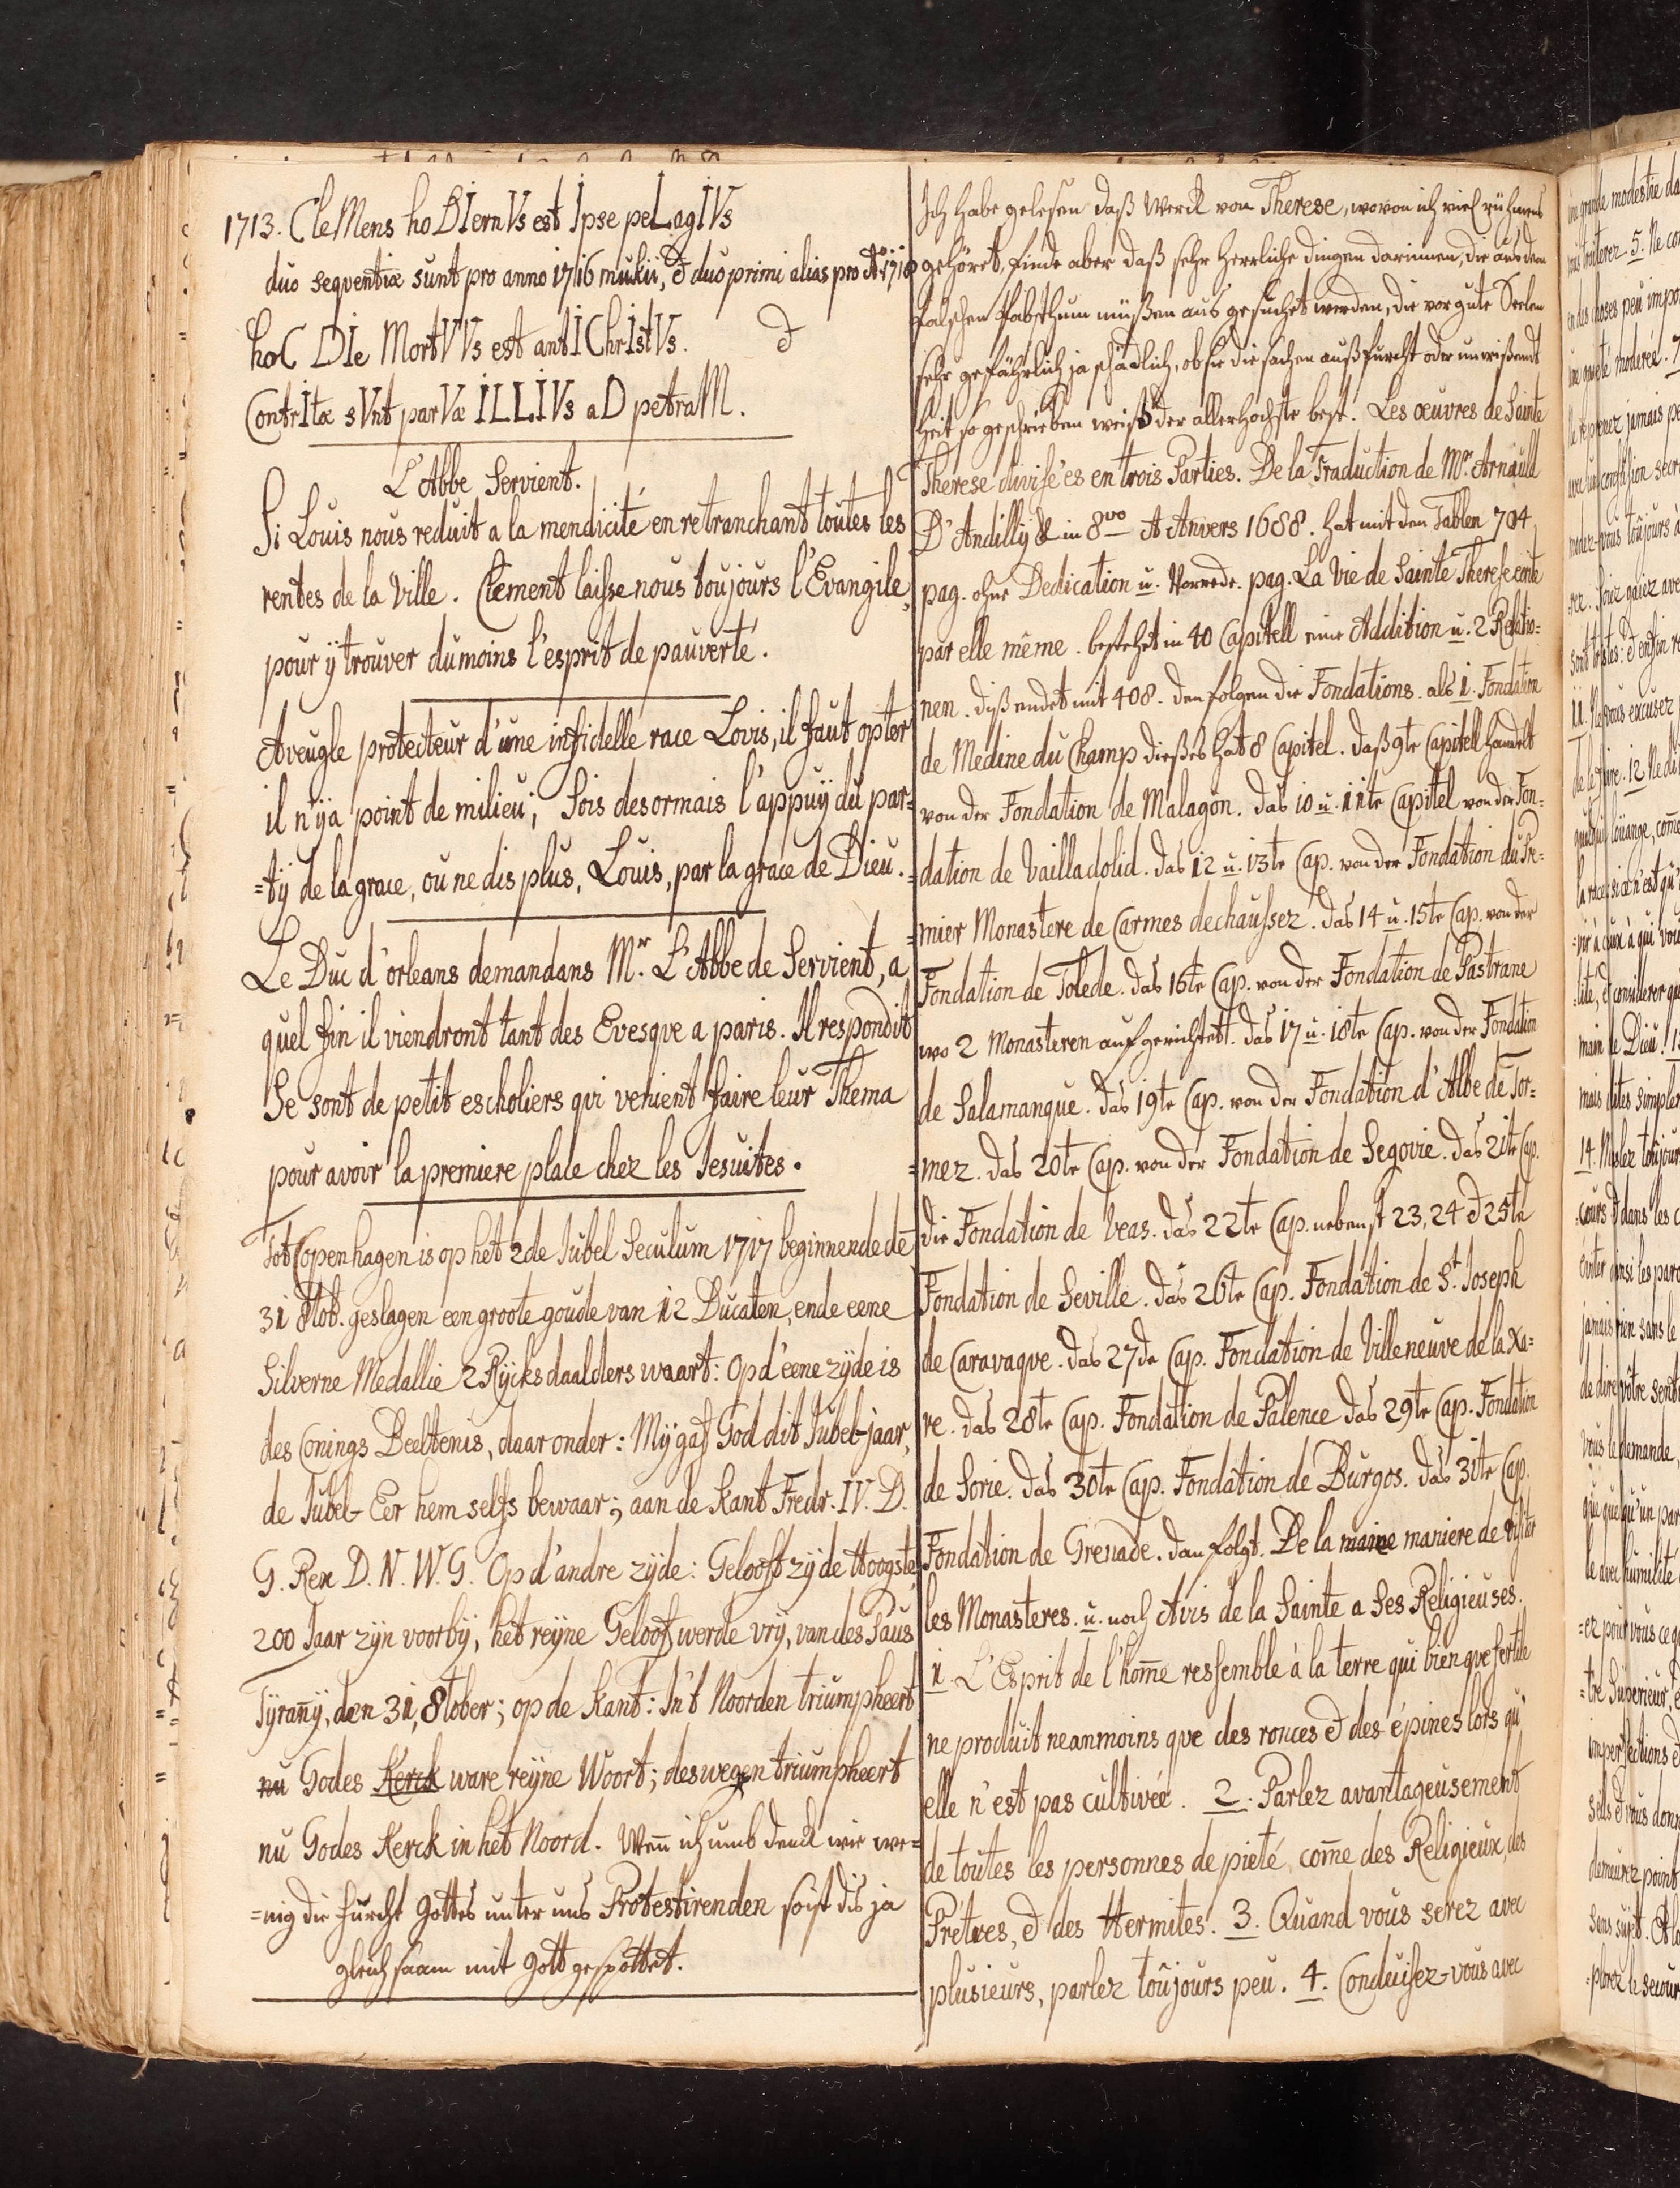 1713. CleMens hoDIernVs est Ipse peLagIVs
duo seqventiæ sunt pro anno 1716 &amp; duo primi alias pro Aº 1710
hoC DIe MortVVs est antIChrIstVs.
ContrItæ sVnt parVæ ILLIVs aD petraM.
L'Abbe Servient.
Si Louis nous reduit a la mendicité en retranchant toutes les
rentes de la Ville. Clement laisse nous toujours l'Evangile,
pour ÿ trouver du moins l'esprit de pauverté.
Aveugle protecteur d'une infidelle race Lovis, il faut opter
il n'ÿa point de milieu; Sois desormais l'appuÿ du par=
=tÿ de la grace, ou ne dis plus, Louis, par la grace de Dieu.
Le Duc d'orleans demandans Mr. L'Abbe de Servient, a
quel fin il viendront tant des Evesque a paris. Il respondit
Se sont de petit escholiers qvi venient faire leur Thema
pour avoir la premiere place chez les Jesuites.
Tot Copenhagen is op het 2de Jubel Seculum 1717 beginnende de
31 8tob. geslagen een groote goude van 12 Ducaten, ende eene
Silverne Medallie 2 Rÿcks daalders waart: Op d'eene zÿde is
des Conings Beeltenis, daar onder: Mÿ gaf God dit Jubel-jaar,
de Jubel-Eer hem selfs bewaar; aan de kant Fredr. IV. D.
G. Rex D. N. W. G. Op d'andre zÿde: Gelooft zÿ de Hoogste,
200 Jaar zÿn voorbÿ, het reÿne Geloof werde vrÿ, van des Paus
Tÿrañÿ, den 31, 8tober; op de kant: In't Noorden triumpheert
nu Godes Kerck ware reÿne Woort; deswegen triumpheert
nu Godes Kerck in het Noord. Weñ ich umb denck wie we=
=nig die furcht Gottes unter uns Protestirenden so ist dis ja
gleichsaam mit Gott gespottet.
Ich habe gelesen daß Werck von Therese, wovon ich viel rühmens
gehöret, finde aber daß sehr herrliche dingen darinnen, die aus dem
falschen Pabsthum müßen aus gesuchet werden, die vor gute Seelen
sehr gefährlich ja schädlich, ob sie die sachen auß furcht oder unwißend
heit so geschrieben weiß der allerhöchste best. Les oeuvres de Sainte
Therese divisées en trois Parties. De la Traduction de Mr. Arnauld
D'Andillÿ &amp; in 8vo A Anvers 1688. hat mit den Tablen 704
pag. ohne Dedication u. Vorrede. pag. La Vie de Sainte Therese ecrite
par elle même. bestehet in 40 Capitell eine Addition u. 2 Relatio=
nen. diß endet mit 408. den folgen die Fondations. als 1. Fondation
de Medine du Champ dießes hat 8 Capitel. daß 9te Capitell handelt
von der Fondation de Malagon. das 10 u. 11te Capitel von der Fon=
dation de Vailladolid. das 12 u. 13te Cap. von der Fondation du Pr=
=mier Monastere de Carmes dechaussez. das 14 u. 15te Cap. von der
Fondation de Tolede. das 16te Cap. von der Fondation de Pastrane
wo 2 Monasteren aufgerichtet. das 17 u. 18te Cap. von der Fondation
de Salamanque. das 19te Cap. von der Fondation d'Albe de Tor=
=mez. das 20te Cap. von der Fondation de Segovie. das 21te Cap.
die Fondation de Veas. das 22te Cap. nebenst 23, 24 &amp; 25te
Fondation de Seville. das 26te Cap. Fondation de St. Joseph
de Caravaqve. das 27de Cap. Fondation de Villeneuve de la Xa=
re. das 28te Cap. Fondation de Palence das 29te Cap. Fondation
de Sorie. das 30te Cap. Fondation de Burgos. das 31te Cap.
Fondation de Grenade. dan folgt. De la maniere de visiter
les Monasteres. u. noch Avis de la Sainte a Ses Religieuses.
1. L'Esprit de l'hom̃e ressemble à la terre qui bien qve fertile
ne produit neanmoins qve des ronces &amp; des épines lors qu'
elle n'est pas cultivée. 2. Parlez avantageusement
de toutes les personnes de pieté, com̃e des Religieux, des
Prétres, &amp; des Hermites. 3. Quand vous serez avec
plusieurs, parlez toûjours peu. 4. Conduisez-vous avec